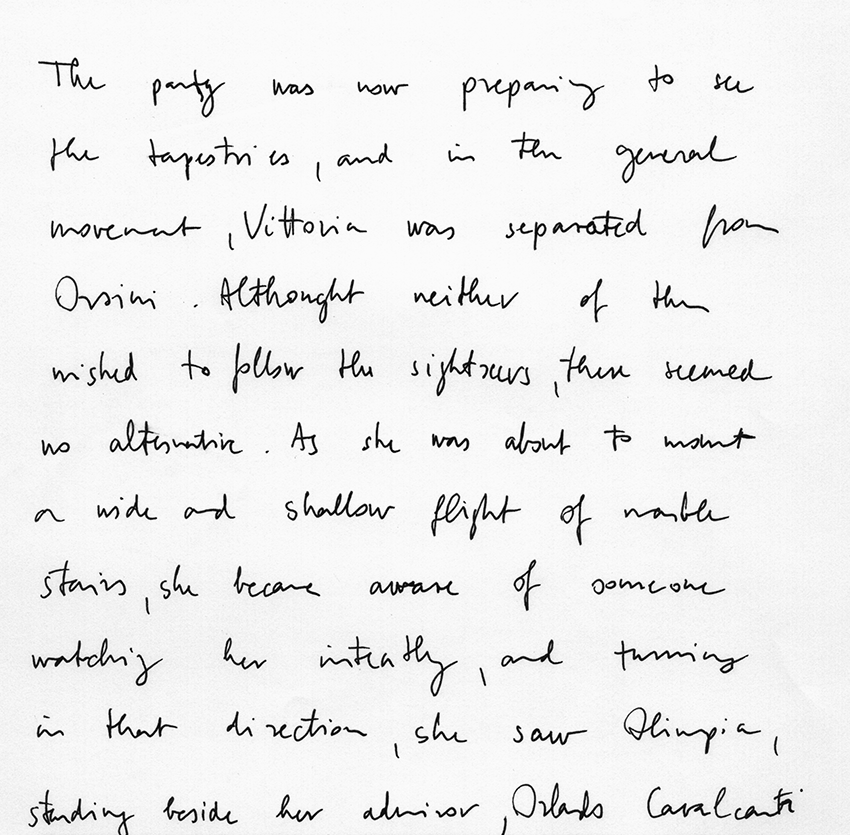 The party was now preparing to see
the tapestries, and in the general
movement, Vittoria was separated from
Orsini. Althought neither of them
wished to follow the sightseers, there seemed
no alternative. As she was about to mount
a wide and shallow flight of marble
stairs, she became aware of someone
watching her intently, and turning
in that direction, she saw Olimpia,
standing beside her admiror, Orlando Cavalcanti